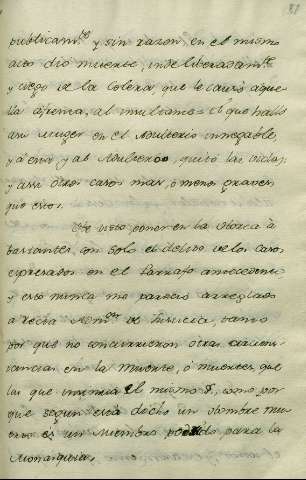 publicam.te y sin razon, en el mismo
acto dio muerte, indeliberadam.te
y ciego de la colera, que le causò aque-
lla afrenta, al insultanto: el que hallò
asu Muger en el Adulterio innegable,
y à esta, y al Adultero, quitò las vidas;
y asi otros casos mas, ò menos graves
que estos.
He visto, poner en la Horca à
bastantes, con solo el delito de los casos
expresados en el Parrafo antecedente
y esto nunca me pareciò arreglado
a recta Adm.on de Justicia, tanto
por que no concurrieron otras circuns-
tancias en la Muerte, ò muertes, que
las que el mismo, como por
que segun está dicho un hombre mu-
erto es un miembro perdido, para la
Monarquia.